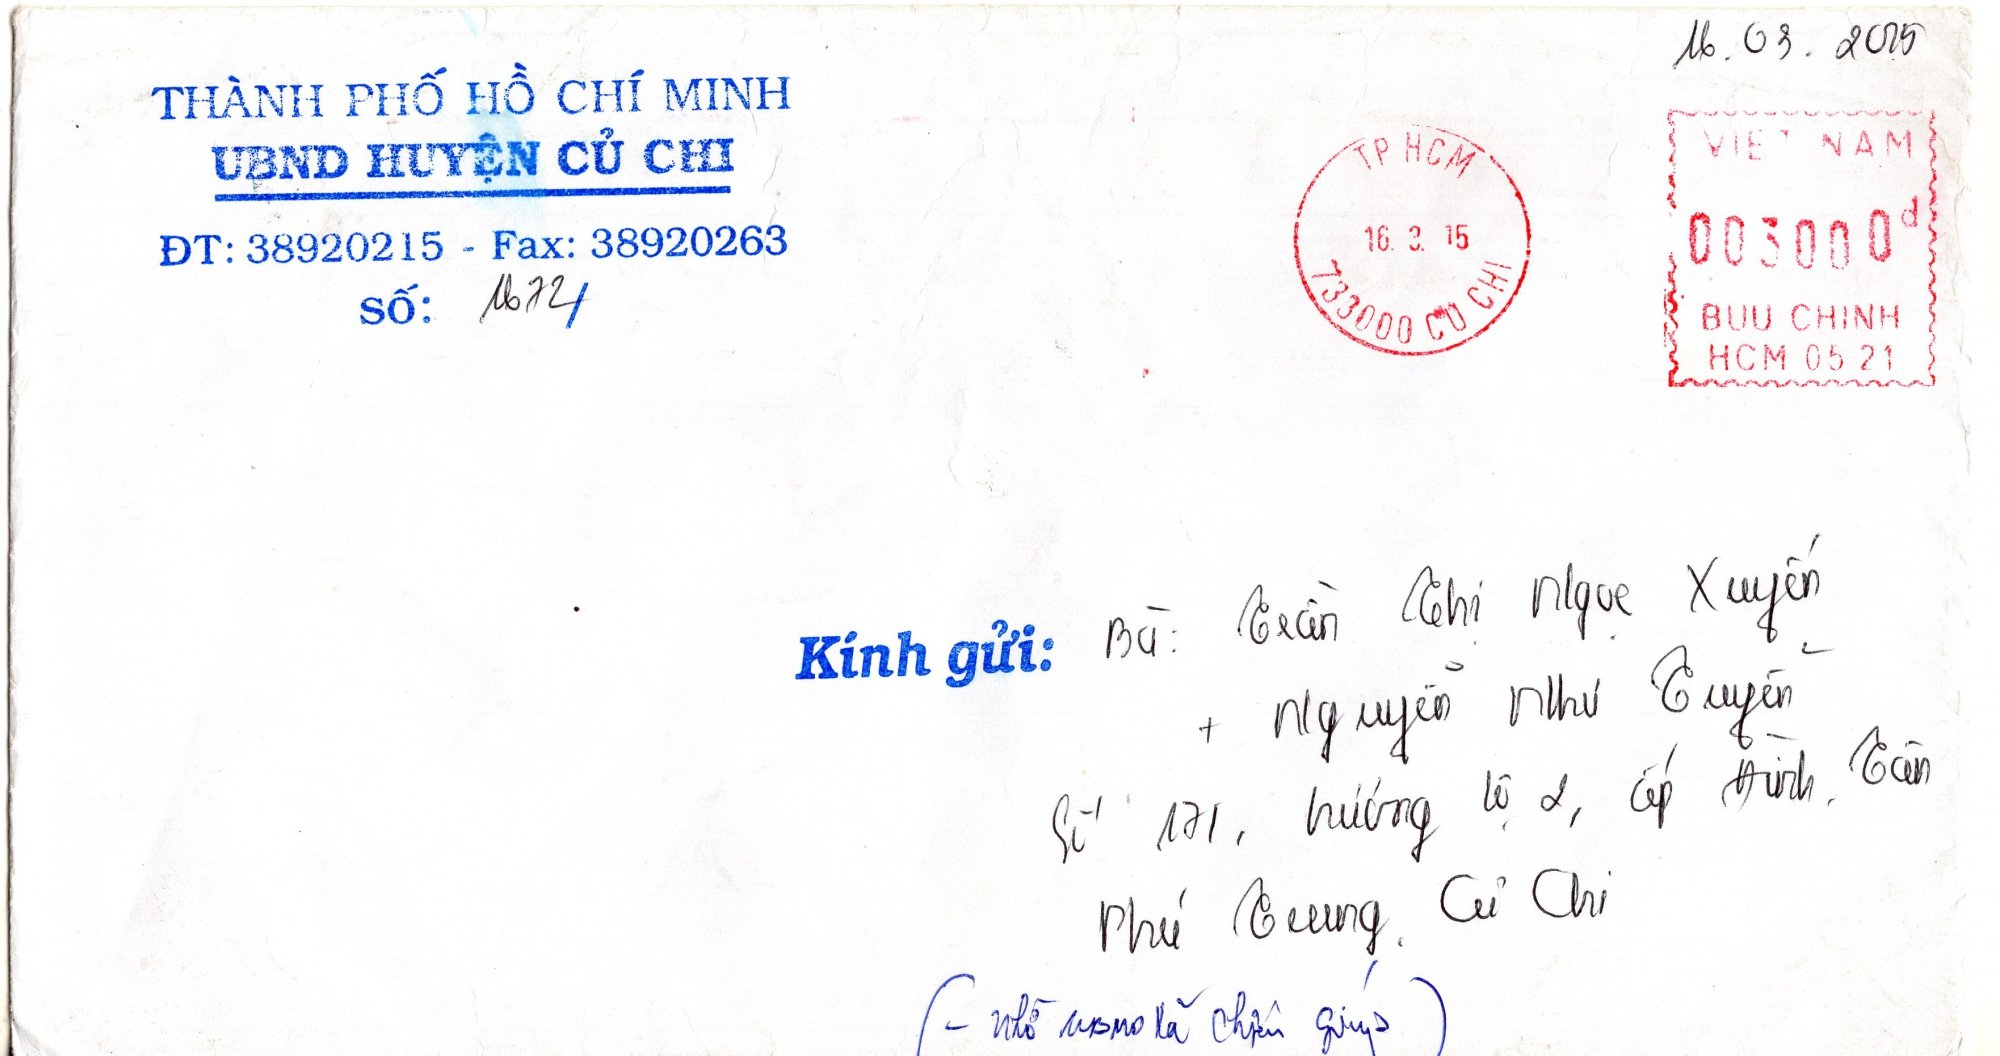 16.03.2015
THÀNH PHỐ HỒ CHÍ MINH
UBND HUYỆN CỦ CHI
ĐT: 38920215 - Fax: 38920263
Số: 1672/
TP HCM
16. 3. 15
733000 CU CHI
VIET NAM
003000đ
BUU CHINH
HCM 05 21
Kính gửi: Bà: Trần Thị Ngọc Xuyến
+ Nguyễn Như Tuyền
Số 171, hương lộ 2, ấp Đình, Tân
Phú Trung, Củ Chi
(- Nhờ UBND xã chuyển giúp)